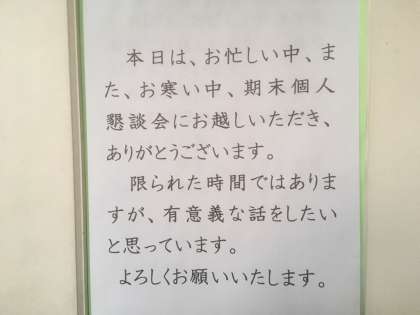 本日は、お忙しい中、ま
た、お寒い中、期末個人
懇談会にお越しいただき、
ありがとうございます。
限られた時間ではありま
すが、有意義な話をしたい
と思っています。
よろしくお願いいたします。